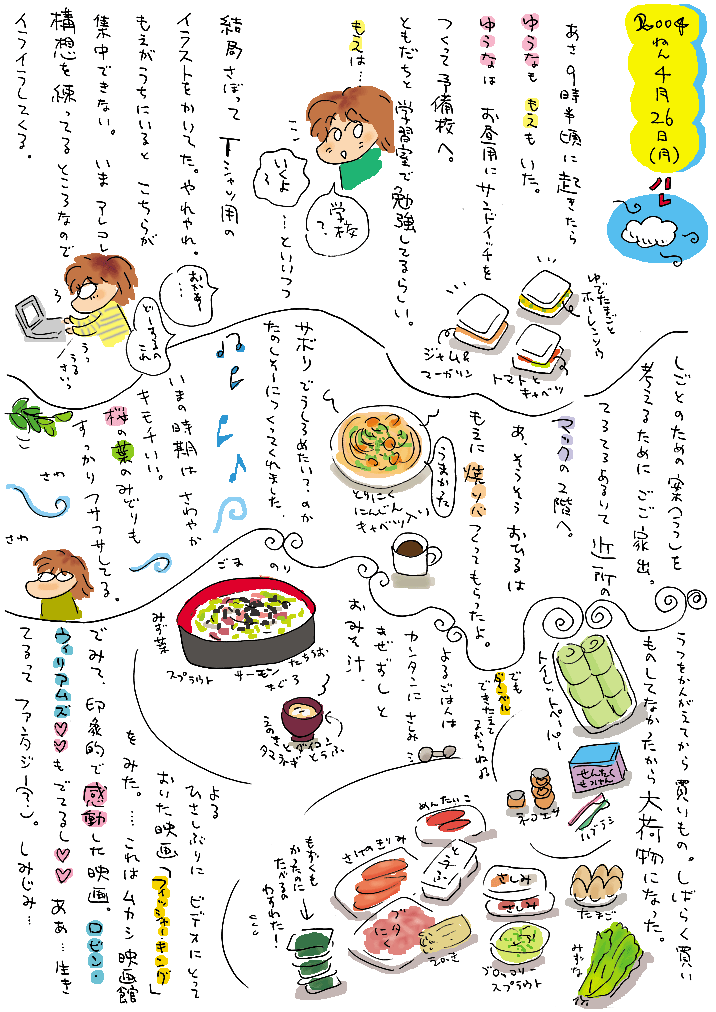 2004
ねん4月
26
日
(月)
あさ9時半頃に起きたら
ゆうなも もえも いた。
ゆうなは お昼用にサンドイッチを
つくって予備校へ。
ともだちと 学習室で勉強してるらしい。
もえは…
学校
?
いくよ
〜
…といいつつ
結局さぼって Tシャツ用の
イラストをかいてた。やれやれ。
もえがうちにいると こちらが
集中できない。 いま アレコレ
構想を 練ってる ところなので
イライラしてくる。
おかあー
…
どーするの
これ
うるさいっ
ゆでたまごと
ホーレンソウ
ジャム&
マーガリン
トマトと
キャベツ
しごとのための案(?)を
考えるために ごご 家出。
てろてろあるいて 近所の
マックの2階へ。
あ、そうそう おひるは
もえに 焼リソバ つくってもらったよ。
うまかった
とりにく
にんじん
キャベツ入り
サボリ でうしろめたい?のか
たのしそーにつくってくれました。
いまの時期は さわやか
キモチいい。
桜の葉のみどりも
すっかり フサフサしてる。
さわ
さわ
うつをかんがえてから 買いもの。しばらく買い
ものしてなかったから 大荷物になった。
トイレットペーパー
せんたく
せっけん
ネコエサ
ハブラシ
でも
ダンベル
できたえて
るからね。
よるごはんは
カンタンに さしみ
まぜずしと
おみそ汁。
ごま
のり
みず菜
スプラウト
サーモン
まぐろ
たちうお
えのきとダイコン
タマネギ
とうふ
めんたいこ
さけのきりみ
とうふ
さしみ
さしみ
たまご
ブタ
にく
ブロッコリー
スプラウト
みずな
もずくも
かったのに
たべるの
わすれた!
よる
ひさしぶりに ビデオにとって
おいた映画「フィッシャーキング」
をみた。…これはムカシ 映画館
でみて、印象的で 感動した映画。 ロビン・
ウィリアムズ♡♡もでてるし♡♡ ああ…生き
てるって ファンタジー(?)。しみじみ…